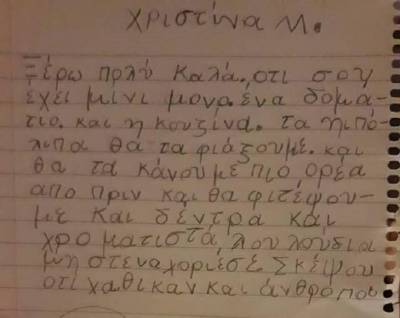 χριστίνα Μ.
Ξέρω πολύ καλά. οτι σου
έχει μίνι μονο. ένα δομα-
τιο. και η κουζίνα. τα ηπό-
λιπα θα τα φιάξουμε. και
θα τα κάνουμε πιο ορέα
απο πριν και θα φιτέψου-
με και δέντρα και
χρο ματιστά λουλούδια
μη στεναχοριέσε. Σκέψου
οτι χαθικαν και άνθρόποι